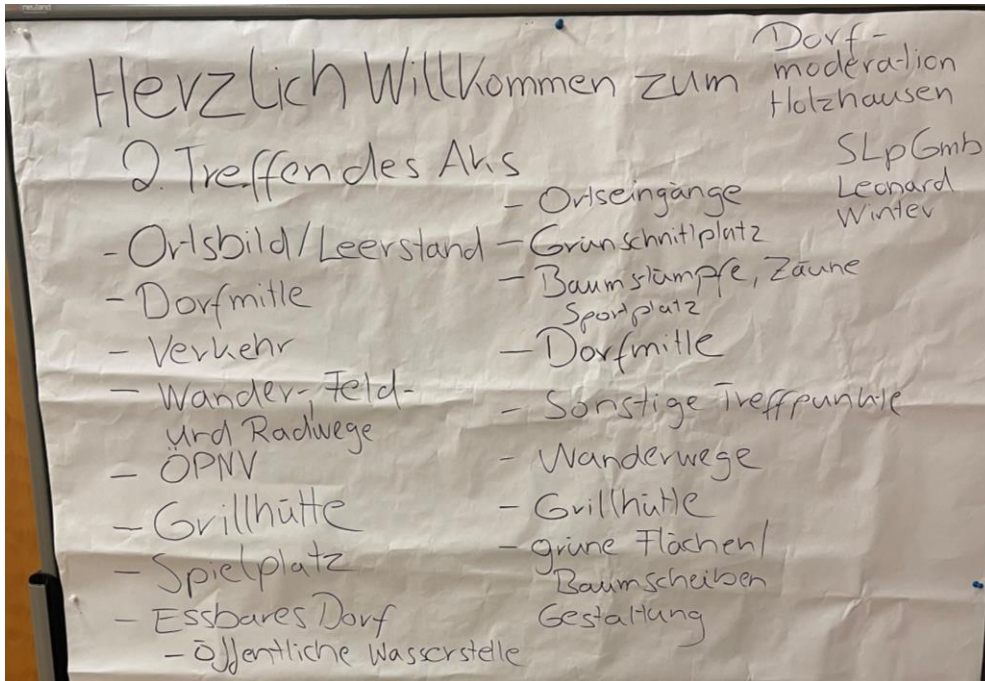 neuland
Herzlich Willkommen zum
Dorf-
moderation
Holzhausen
2. Treffen des AKs
SLp Gmb
Leonard
Winter
- Ortsbild/Leerstand
- Dorfmitte
- Verkehr
- Wander-, Feld-
und Radwege
- ÖPNV
- Grillhütte
- Spielplatz
- Essbares Dorf
- Öffentliche Wasserstelle
- Ortseingänge
- Grünschnittplatz
- Baumstümpfe, Zäune
Sportplatz
- Dorfmitte
- Sonstige Treffpunkte
- Wanderwege
- Grillhütte
- grüne Flächen/
Baumscheiben
Gestaltung